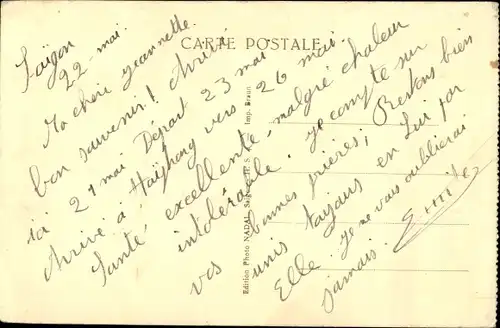 CARTE POSTALE
Saïgon
22 - mai.
Ma chère Jeannette.
bon souvenir! Arrivé
ici 21 mai Départ 23 mai
Arrivé à Haïphong vers 26 mai.
Santé excellente - malgré chaleur
intolérable. Je compte sur
vos bonnes prières; Restons bien
unis toujours en Lui par
Elle. Je ne vous oublierai
jamais.
Edition Photo NADAL, Saïgon
Imp. Braun